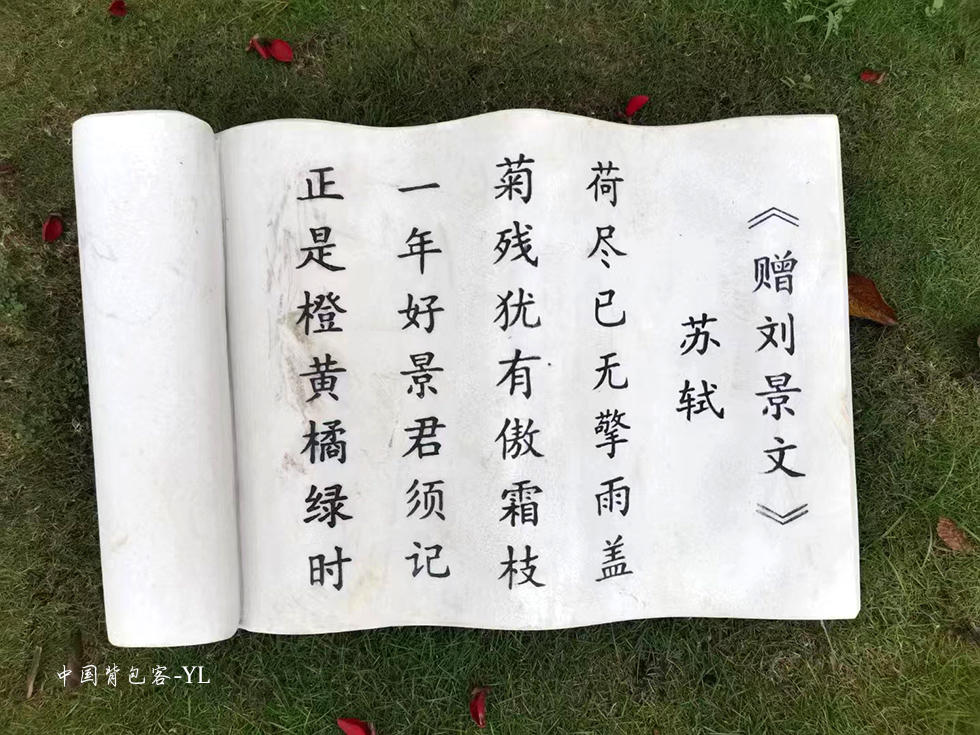 《赠刘景文》
苏轼
荷尽已无擎雨盖
菊残犹有傲霜枝
一年好景君须记
正是橙黄橘绿时
中国背包客-YL